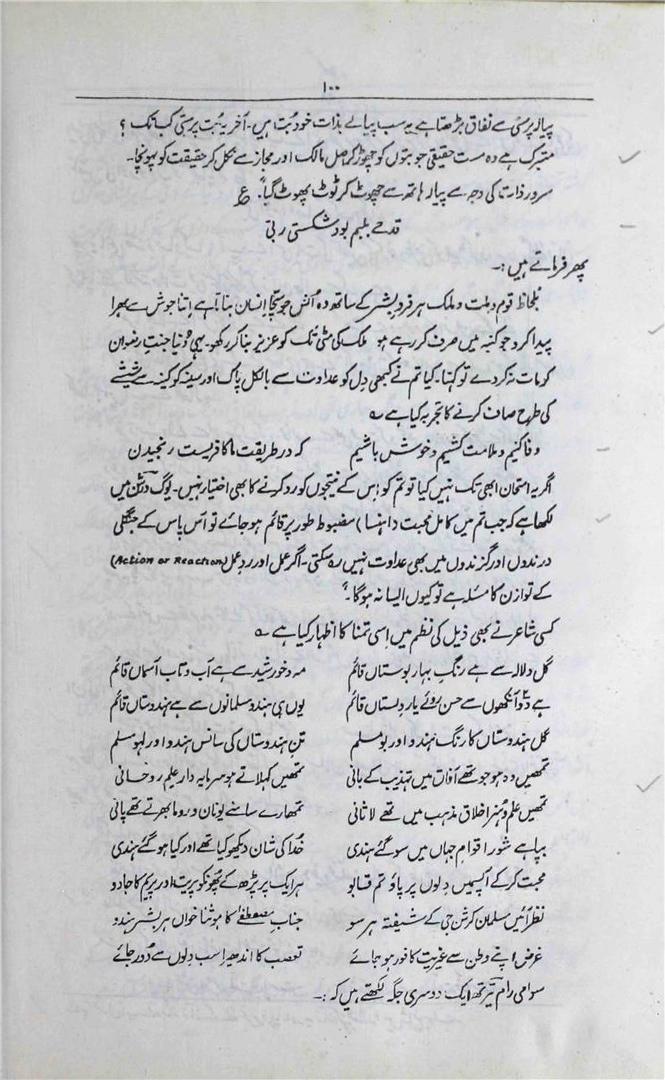 ۱۰۰
پیالہ پرستی سے نفاق بڑھتا ہے یہ سب پیالے بذات خود بُت ہیں۔ آخر یہ بُت پرستی کب تک ؟
متبرک ہے وہ مست حقیقی جو بتوں کو چھوڑ کر اصل مالک اور مجاز سے نکل کر حقیقت کو پہونچا۔
سرور ذات کی وجہ سے پیالہ ہاتھ سے چھوٹ کر ٹوٹ پھوٹ گیا"۔ ع
قدحے بلبم بود شکستی ربی
پھر فرماتے ہیں :۔
بلحاظ قوم و ملت و ملک ہر فرد بشر کے ساتھ وہ اُنس جو سچا انسان بناتا ہے اِتنا جوش سے بھرا
پیدا کرو جو کنبہ میں صرف کر رہے ہو ملک کی مٹی تک کو عزیز بنا کر رکھو۔ یہی دُنیا جنتِ رضوان
کو مات نہ کر دے تو کہنا۔ کیا تم نے کبھی دِل کو عداوت سے بالکل پاک اور سینہ کو کینہ سے شیشے
کی طرح صاف کرنے کا تجربہ کیا ہے ؎
وفا کنیم و ملامت کشیم و خوش باشیم کہ در طریقت ما کافریست رنجیدن
اگر یہ امتحان ابھی تک نہیں کیا تو تم کو اِس کے نتیجوں کو رد کرنے کا بھی اختیار نہیں۔ یوگ درشن میں
لکھا ہے کہ جب تم میں کامل محبت (اہنسا) مضبوط طور پر قائم ہو جائے تو آس پاس کے جنگلی
درندوں اور گزندوں میں بھی عداوت نہیں رہ سکتی۔ اگر عمل اور ردعمل (Action or Reaction)
کے توازن کا مسئلہ ہے تو کیوں ایسا نہ ہوگا۔"
کسی شاعر نے بھی ذیل کی نظم میں اِسی تمنا کا اظہار کیا ہے ؎
گل و لالہ سے ہے رنگِ بہار بوستاں قائم مہ و خورشید سے ہے آب و تاب آسماں قائم
ہے دو آنکھوں سے حسن روئے یار دلستاں قائم یوں ہی ہندو مسلمانوں سے ہے ہندوستاں قائم
گل ہندوستاں کا رنگ ہندو اور بو مسلم تنِ ہندوستاں کی سانس ہندو اور لہو مسلم
تمھیں وہ ہو جو تھے آفاق میں تہذیب کے بانی تمھیں کہلاتے ہو سرمایہ دار علم روحانی
تمھیں علم و ہنر اخلاق مذہب میں تھے لاثانی تمھارے سامنے یونان و روما بھرتے تھے پانی
بپا ہے شور اقوام جہاں میں سو گئے ہندی خُدا کی شان دیکھو کیا تھے اور کیا ہو گئے ہندی
محبت کر کے آپسمیں دِلوں پر پاؤ تم قابو ہر ایک پر پڑھ کے پھونکو پریت اور پریم کا جادو
نظر آئیں مسلمان کرشن جی کے شیفتہ ہر سو جنابِ مصطفےٰ کا ہو ثنا خواں ہر بشر ہندو
غرض اپنے وطن سے غیریت کافور ہو جائے تعصب کا اندھیرا سب دِلوں سے دُور ہو جائے
سوامی رام تیرتھ ایک دوسری جگہ لکھتے ہیں کہ :۔